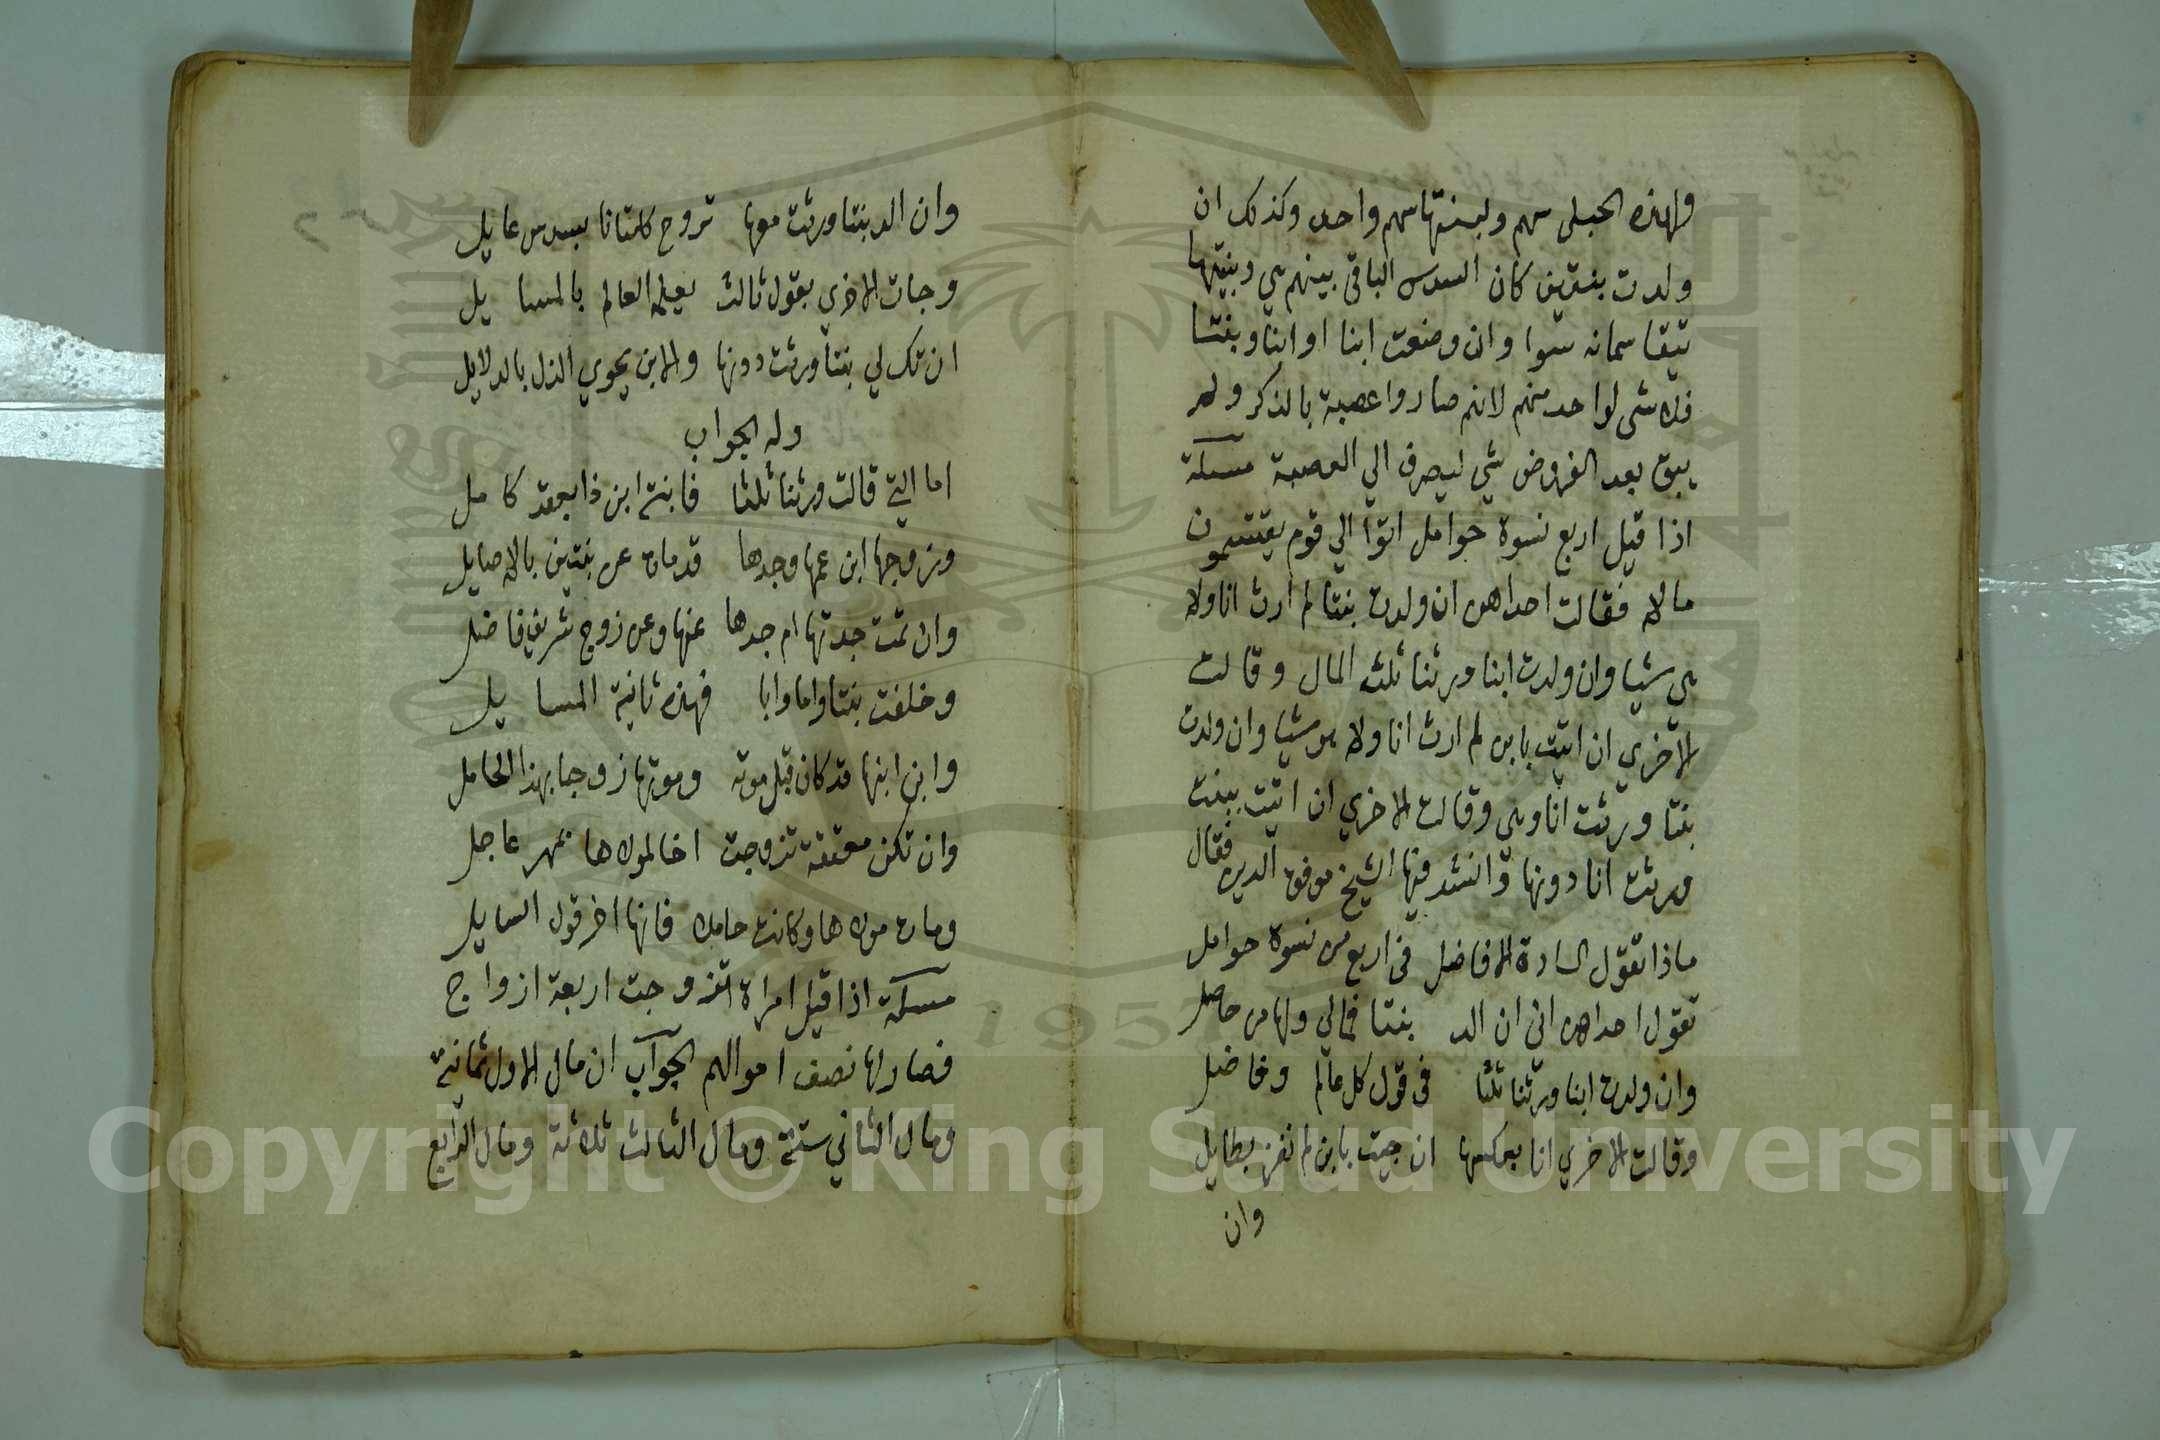 ولهذه الحبلى سهم ولبنتها سهم واحد وكذلك ان
ولدت بنتين كان السدس الباقي بينهم هي وبنتيها
تيقاسمانه سوا وان وضعت ابنا او ابنا وبنتا
فلا شى لواحد منهم لانهم صاروا عصبة بالذكر ولم
يبق بعد الفروض شي ليصرف الي العصبة مسئلة
اذا قيل اربع نسوة حوامل اتوا الي قوم يقتسمون
مالا فقالت احداهن ان ولدت بنتا لم ارث انا ولا
هي شيا وان ولدت ابنا ورثنا ثلث المال وقالت
الاخري ان اتيت بابن لم ارث انا ولا هو شيا وان ولدت
بنتا ورثت انا وهي وقالت الاخري ان اتيت ببنت
ورثت انا دونها وانشد فيها الشيخ موفق الدين فقال
ماذا تقول السادة الافاضل في اربع من نسوة حوامل
تقول احداهن اني ان الد بنتا فمالي ولها من حاصل
وان ولدت ابنا ورثنا ثلثا في قول كل عالم وفاضل
وقالت الاخري انا بعكسها ان جيت بابن لم نفز بطايل
وان
وان الد بنتا ورثت معها تروح كلتانا بسدس عايل
وجات الاخري بقول ثالث يعلمه العالم بالمسايل
ان تك لي بنتا ورثت دونها والابن يحوي الذل بالدلايل
وله الجواب
اما التي قالت ورثنا ثلثا فابنة ابن ذا بعقد كامل
وزوجها ابن عمها وجدها قد مات عن بنتين بالاصايل
وان تمت جدتها ام جدها عنها وعن زوج شريف فاضل
وخلفت بنتا واما وابا فهذه ثانية المسايل
وابن ابنها قد كان قبل موته وموتها زوجا بهذا الحامل
وان تكن معتقة تزوجت اخا لمولاها بمهر عاجل
ومات مولاها وكانت حاملا فانها اخر قول السايل
مسئلة اذا قيل امراة تزوجت اربعة ازواج
فصار لها نصف اموالهم الجواب ان مال الاول ثمانية
ومال الثاني ستة ومال الثالث ثلاثة ومال الرابع
1957
Copyright © King Saud University